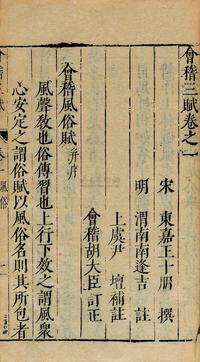 會稽三賦卷之一
宋 東嘉王十朋 撰
明 渭南南逢吉 註
上虞尹 壇補註
會稽胡大臣訂正
會稽風俗賦 并序
風聲教也俗傳習也上行下效之謂風眾
心安定之謂俗賦以風俗名則其所包者